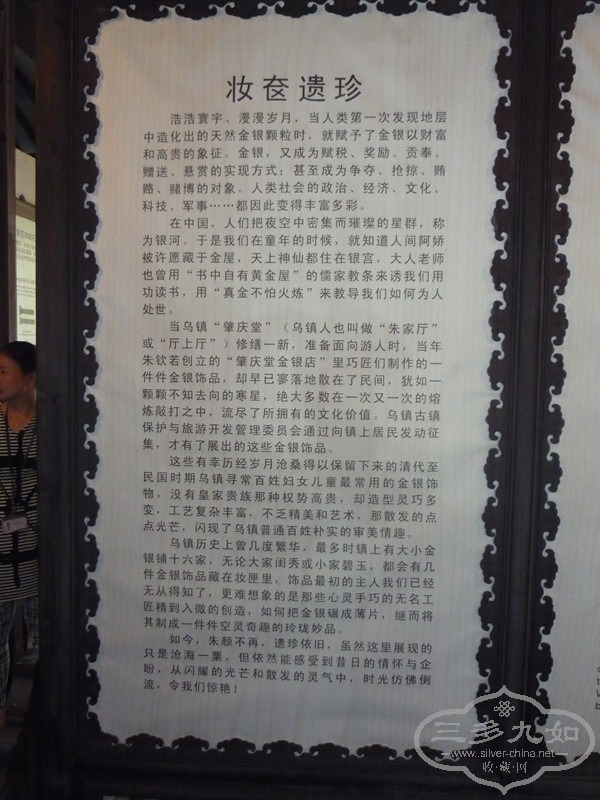 妆奁遗珍
浩浩寰宇、漫漫岁月，当人类第一次发现地层
中造化出的天然金银颗粒时，就赋予了金银以财富
和高贵的象征。金银，又成为赋税、奖励、贡奉、
赠送、悬赏的实现方式；甚至成为争夺、抢掠、贿
赂、赌博的对象。人类社会的政治、经济、文化、
科技、军事……都因此变得丰富多彩。
在中国，人们把夜空中密集而璀璨的星群，称
为银河。于是我们在童年的时候，就知道人间阿娇
被许愿藏于金屋，天上神仙都住在银宫，大人老师
也曾用“书中自有黄金屋”的儒家教条来诱我们用
功读书，用“真金不怕火炼”来教导我们如何为人
处世。
当乌镇“肇庆堂”（乌镇人也叫做“朱家厅”
或“厅上厅”）修缮一新，准备面向游人时，当年
朱钦若创立的“肇庆堂金银店”里巧匠们制作的一
件件金银饰品，却早已寥落地散在了民间，犹如一
颗颗不知去向的寒星，绝大多数在一次又一次的熔
炼敲打之中，流尽了所拥有的文化价值。乌镇古镇
保护与旅游开发管理委员会通过向镇上居民发动征
集，才有了展出的这些金银饰品。
这些有幸历经岁月沧桑得以保留下来的清代至
民国时期乌镇寻常百姓妇女儿童最常用的金银饰
物，没有皇家贵族那种权势高贵，却造型灵巧多
变，工艺复杂丰富，不乏精美和艺术，那散发的点
点光芒，闪现了乌镇普通百姓朴实的审美情趣。
乌镇历史上曾几度繁华，最多时镇上有大小金
银铺十六家，无论大家闺秀或小家碧玉，都会有几
件金银饰品藏在妆匣里，饰品最初的主人我们已经
无从得知了，更难想象的是那些心灵手巧的无名工
匠精到入微的创造，如何把金银碾成薄片，继而将
其制成一件件空灵奇趣的玲珑妙品。
如今，朱颜不再，遗珍依旧，虽然这里展现的
只是沧海一粟，但依然能感受到昔日的情怀与企
盼，从闪耀的光芒和散发的灵气中，时光仿佛倒
流，令我们惊艳！
三多九如
www.silver-china.net
收·藏·网